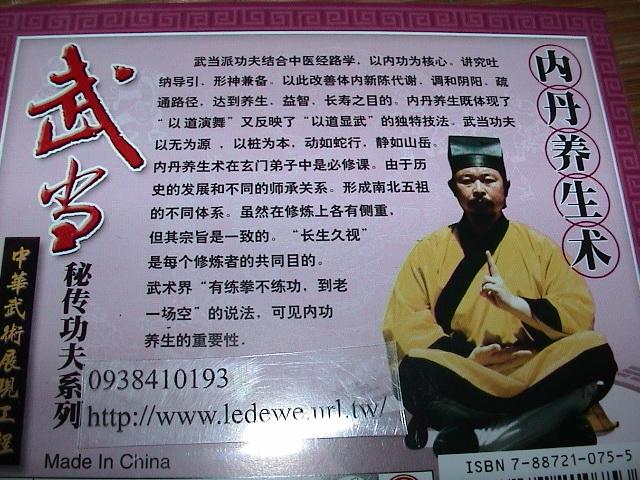 武当
秘传功夫系列
中華武術展現工程
内丹养生术
武当派功夫结合中医经路学，以内功为核心。讲究吐
纳导引．形神兼备。以此改善体内新陈代谢、调和阴阳．疏
通路径，达到养生．益智．长寿之目的。内丹养生既体现了
“以道演舞”又反映了“以道显武”的独特技法。武当功夫
以无为源，以桩为本，动如蛇行，静如山岳。
内丹养生术在玄门弟子中是必修课。由于历
史的发展和不同的师承关系。形成南北五祖
的不同体系。虽然在修炼上各有侧重，
但其宗旨是一致的。“长生久视”
是每个修炼者的共同目的。
武术界“有练拳不练功，到老
一场空”的说法，可见内功
养生的重要性．
0938410193
http://www.ledewe.url.tw/
Made In China
ISBN 7-88721-075-5